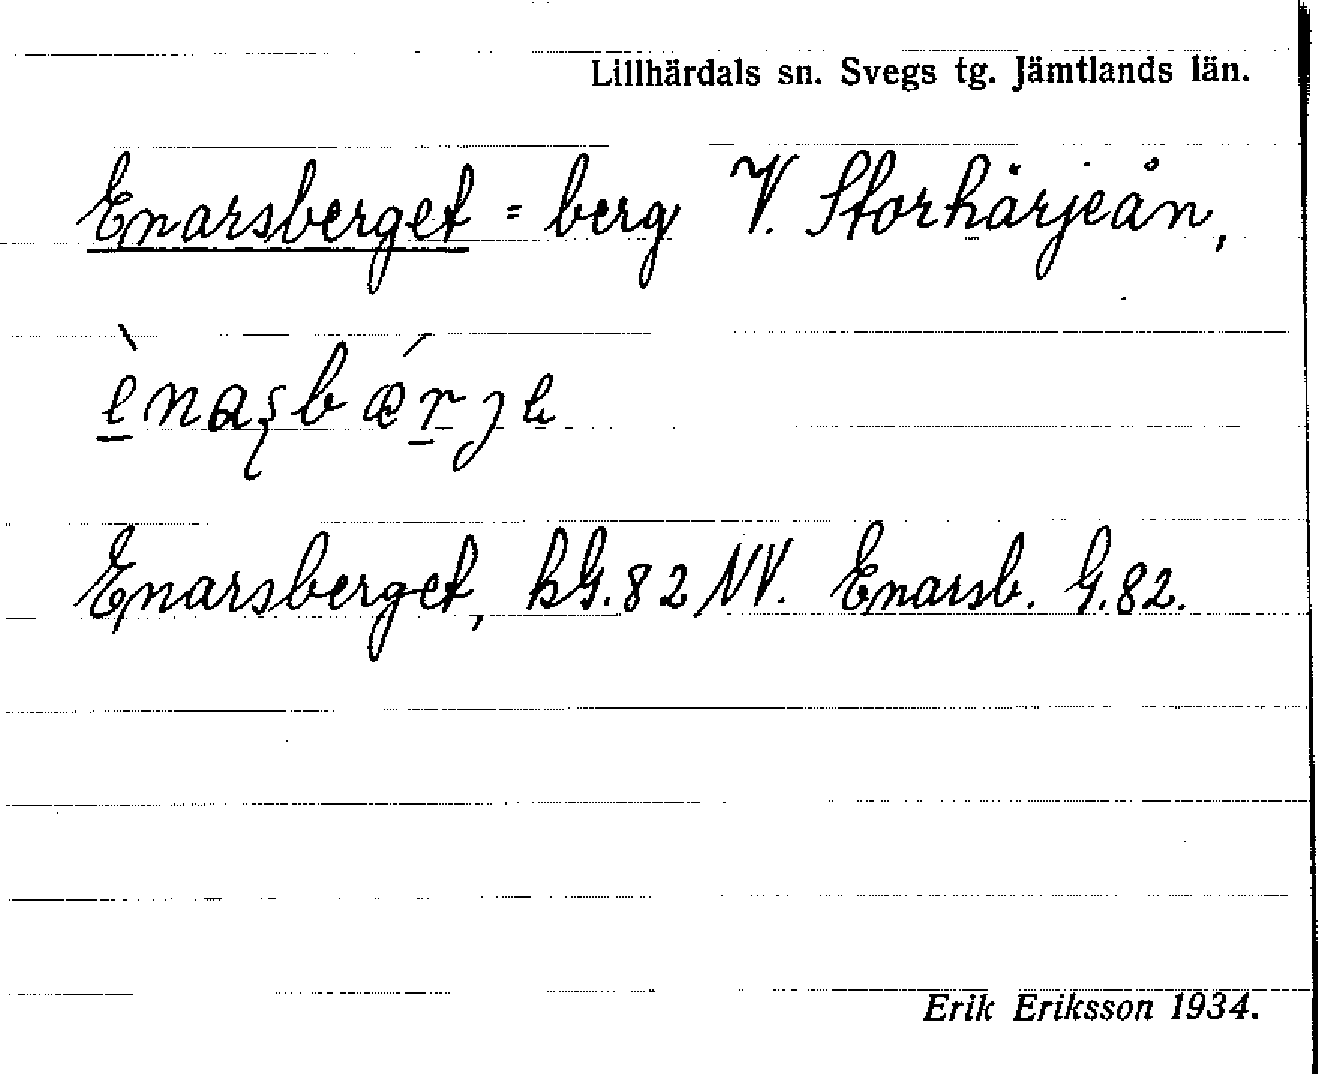 Lillhärdals sn. Svegs tg. Jämtlands län.
Enarsberget = berg V. Storhärjeån,
è̲naʂbǽr̲ȷe
Enarsberget, kG. 82 NV. Enarsb. G. 82.
Erik Eriksson 1934.